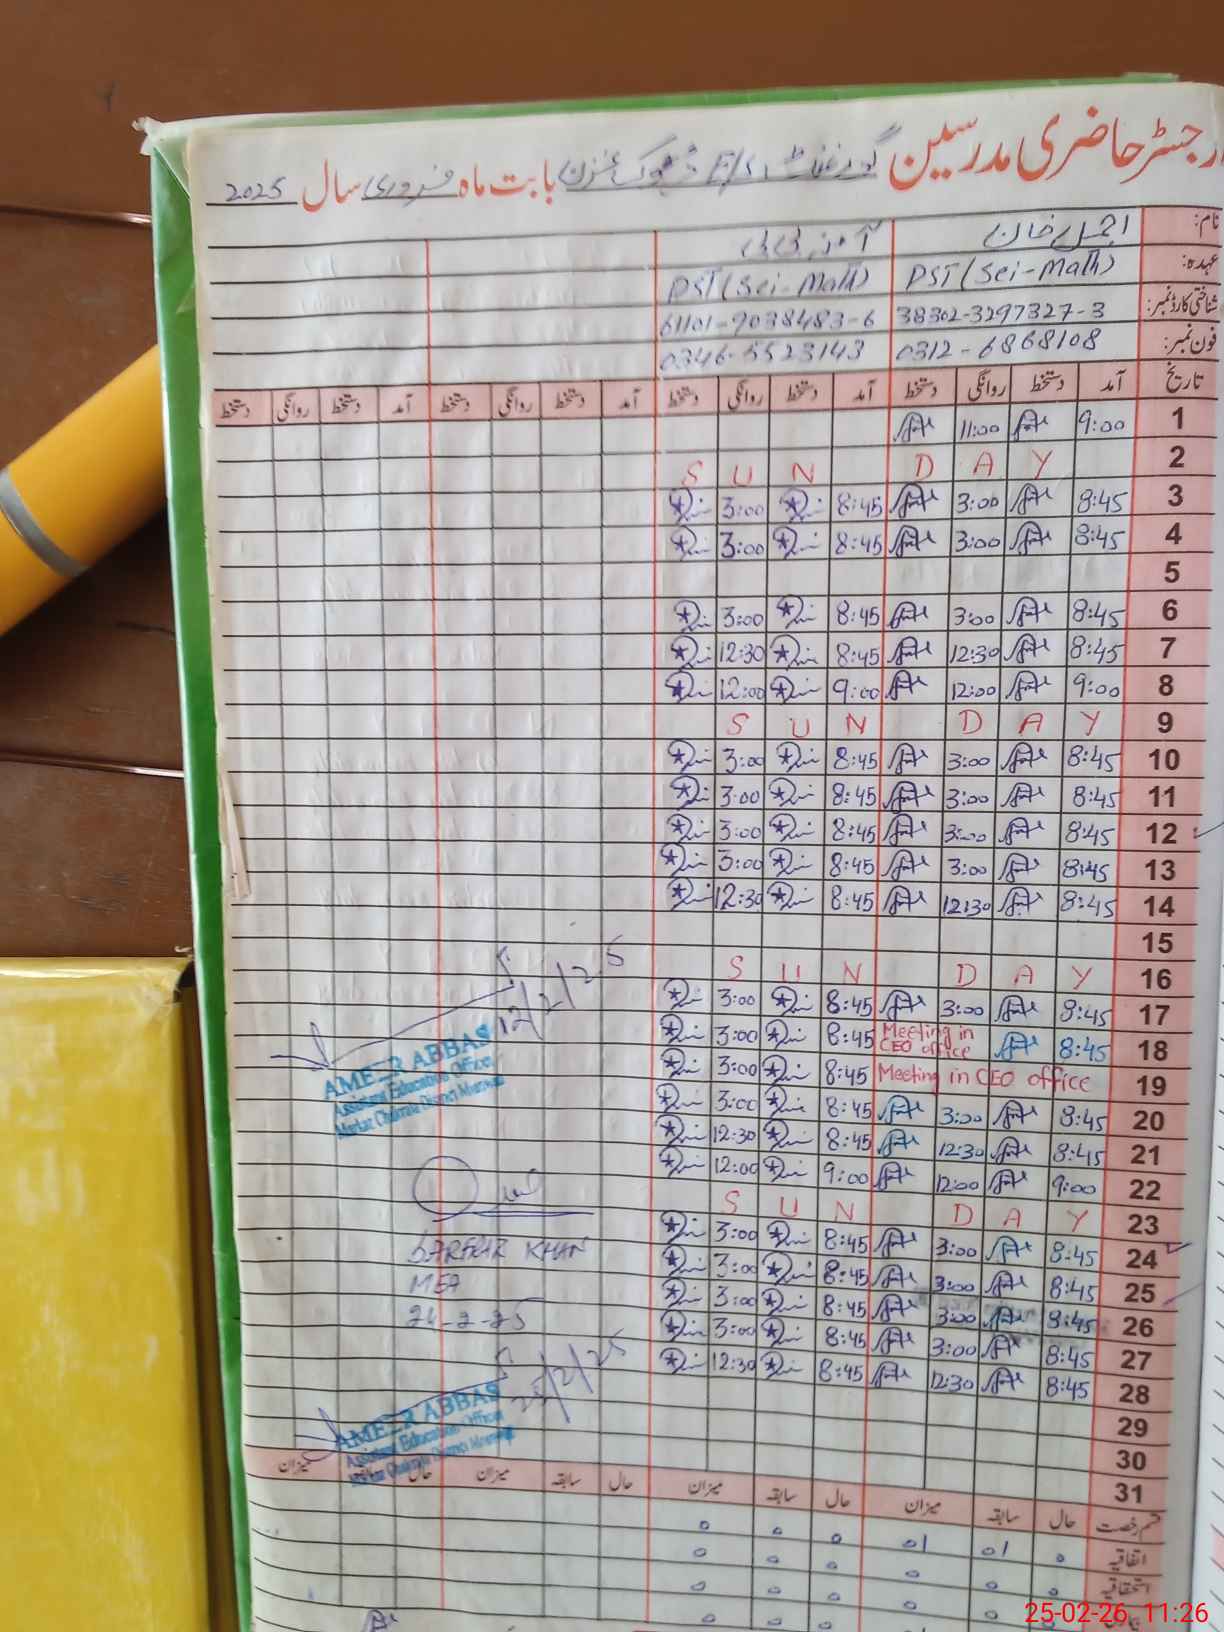 رجسٹر حاضری مدرسین گورنمنٹ E/S ڈھوک بابت ماہ فروری سال 2025
نام: اجمل خان
عہدہ: PST (Sci-Math) PST (Sci-Math)
شناختی کارڈ نمبر: 38302-3297327-3 61101-9038483-6
فون نمبر: 0312-6868108 0346-5523143
تاریخ آمد دستخط روانگی دستخط آمد دستخط روانگی دستخط آمد دستخط روانگی دستخط آمد دستخط روانگی دستخط
1 9:00 11:00
2 S U N D A Y
3 8:45 3:00 8:45 3:00
4 8:45 3:00 8:45 3:00
5
6 8:45 3:00 8:45 3:00
7 8:45 12:30 8:45 12:30
8 9:00 12:00 9:00 12:00
9 S U N D A Y
10 8:45 3:00 8:45 3:00
11 8:45 3:00 8:45 3:00
12 8:45 3:00 8:45 3:00
13 8:45 3:00 8:45 3:00
14 8:45 12:30 8:45 12:30
15
16 S U N D A Y
17 8:45 3:00 8:45 3:00
18 8:45 Meeting in CEO office 8:45 3:00
19 Meeting in CEO office 8:45 3:00
20 8:45 3:00 8:45 3:00
21 8:45 12:30 8:45 12:30
22 9:00 12:00 9:00 12:00
23 S U N D A Y
24 8:45 3:00 8:45 3:00
25 8:45 3:00 8:45 3:00
26 8:45 3:00 8:45 3:00
27 8:45 3:00 8:45 3:00
28 8:45 12:30 8:45 12:30
29
30
31
12/2/25
AMEER ABBAS
Assistant Education Officer
Markaz Chakrala District Mianwali
KHAN
MEA
24-2-25
25/2/25
AMEER ABBAS
Assistant Education Officer
Markaz Chakrala District Mianwali
قسم رخصت حال سابقہ میزان حال سابقہ میزان حال سابقہ میزان حال میزان
اتفاقیہ 0 01 01 0 0 0
استحقاقیہ 0 0 0 0 0 0
25-02-26 11:26